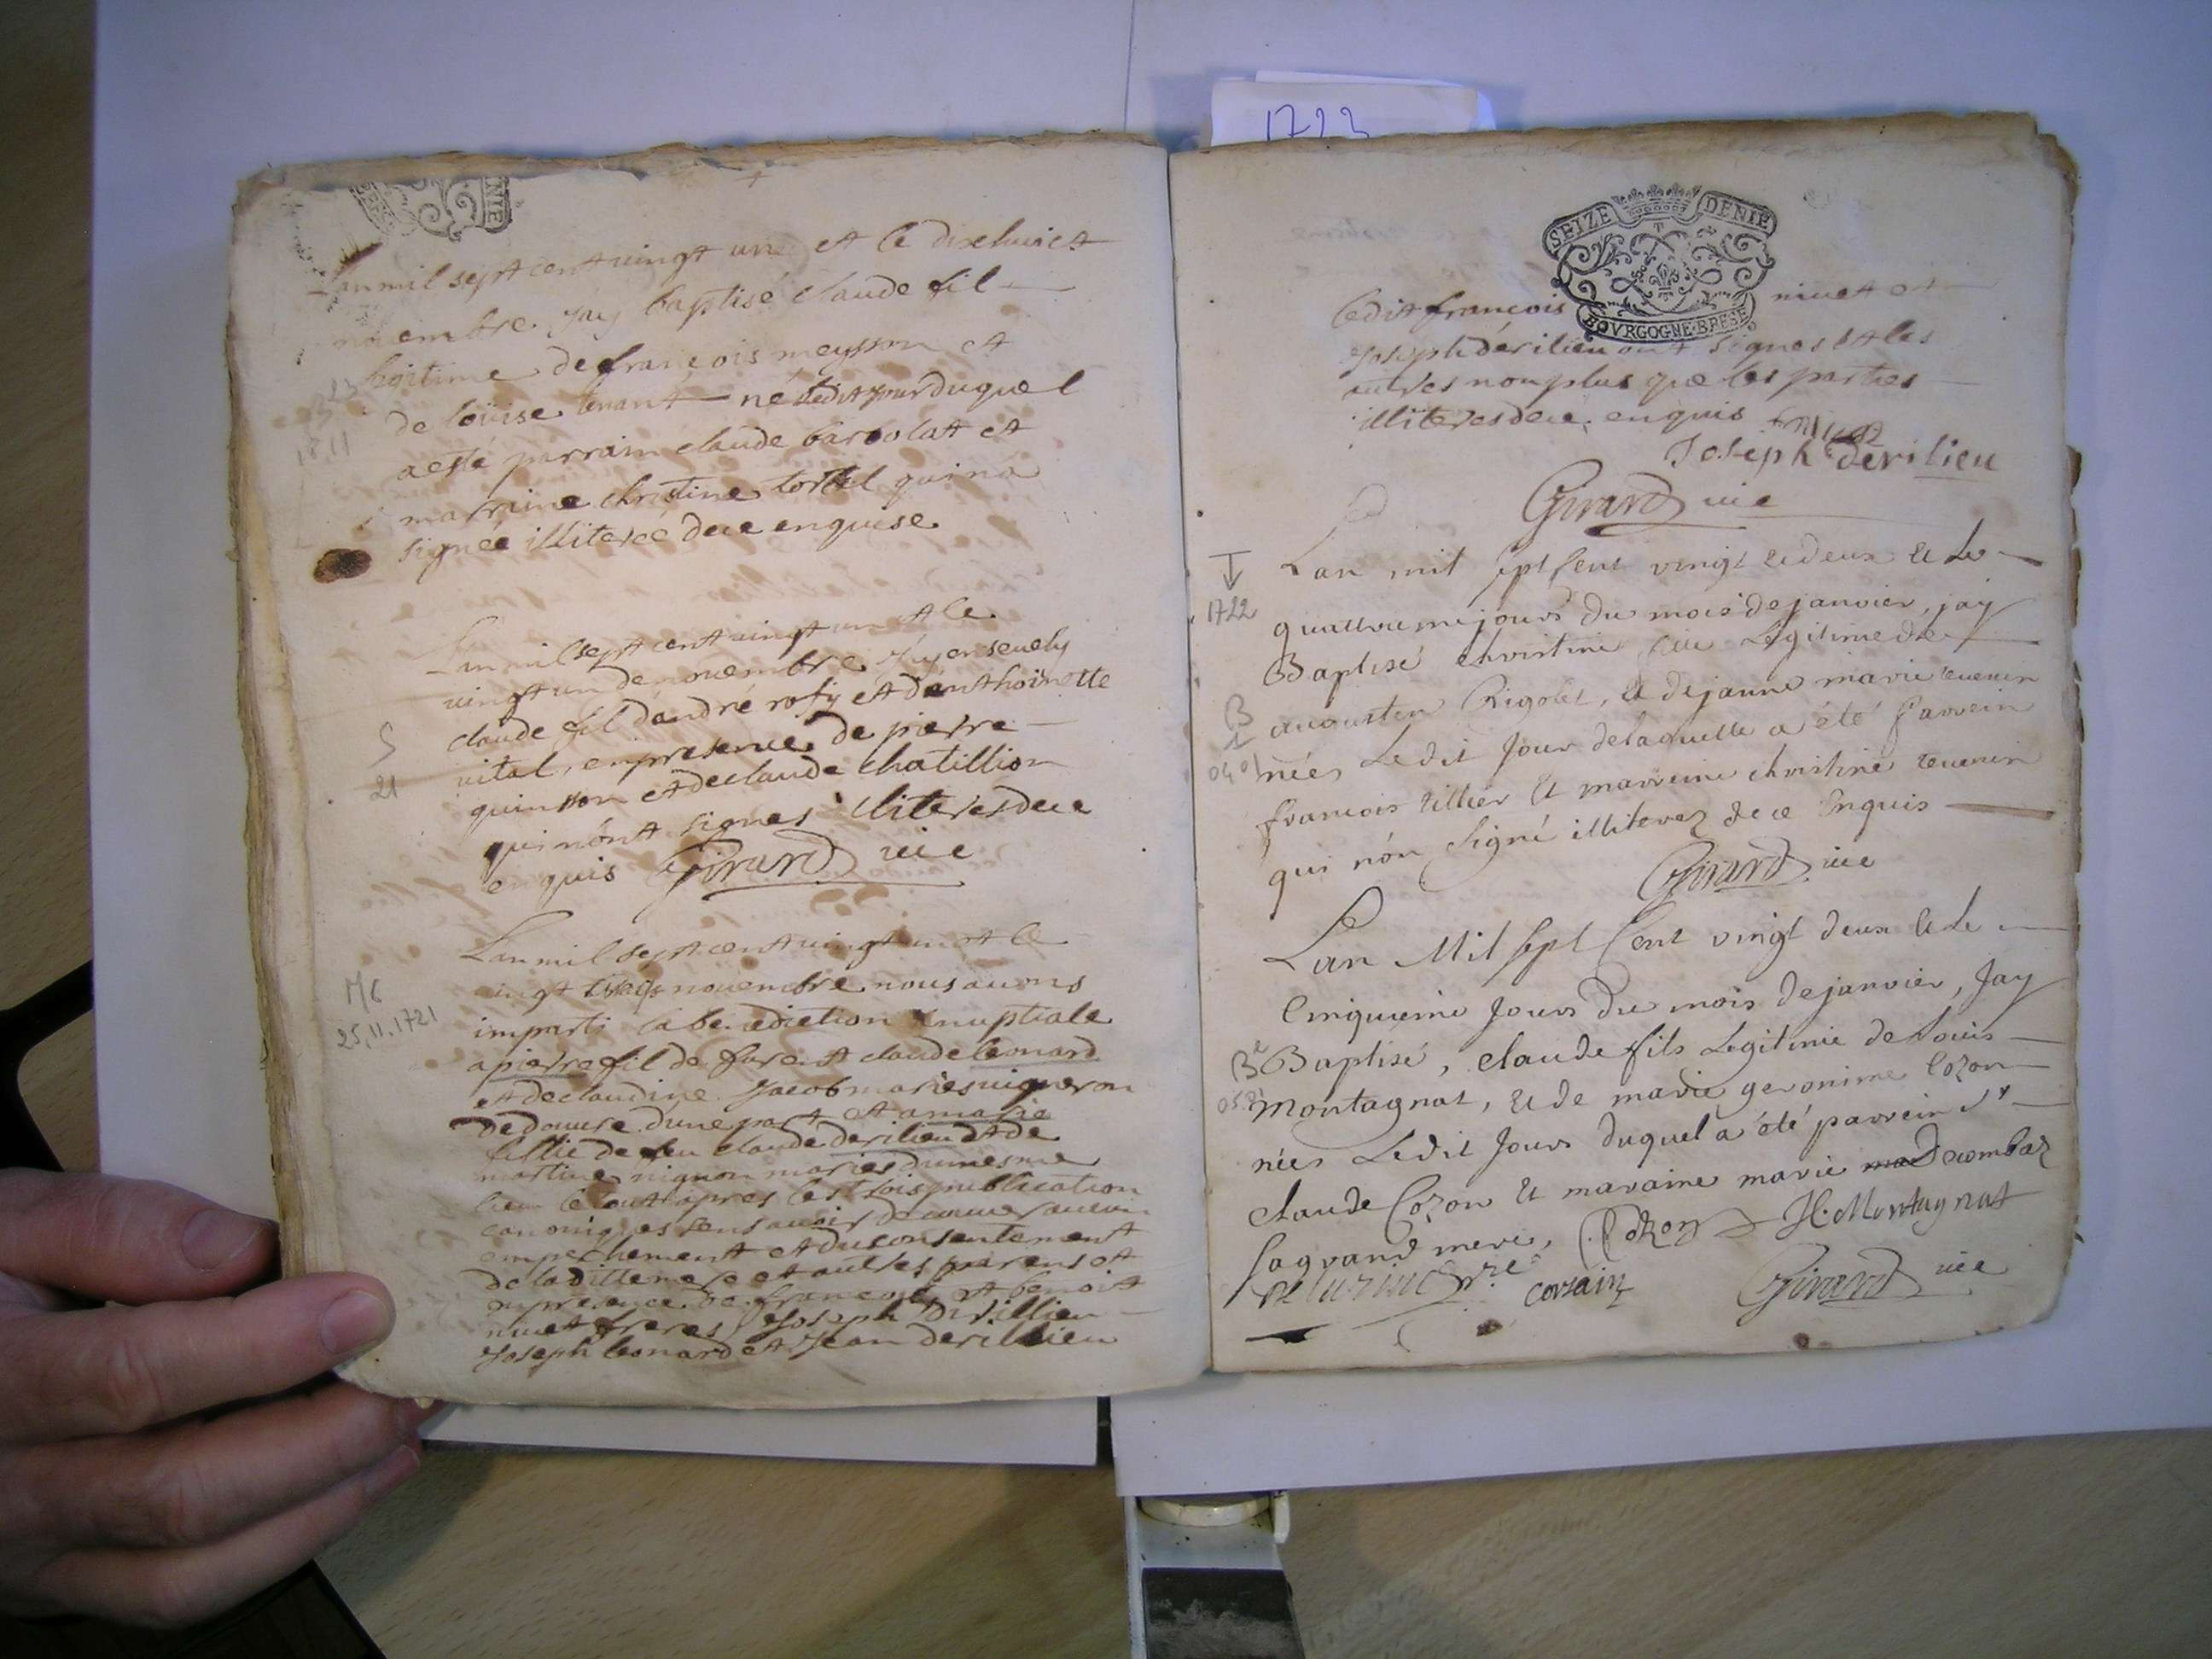 NIE
Lan mil sept cent vingt un et le dixhuict
nouembre Jay baptisé claude fil
legitime de françois meysson et
de loüise tenant né ledit jour duquel
a esté parrain claude barbolat et
marraine christine tortel qui na
signée illiterée de ce enquise
23
18.11
Lan mil sept cent vingt un et le
vingt un de nouembre Jay enseuely
claude fil d'andré rosy et d'anthoinette
vital, en presence de pierre
quinson et de claude chatillion
qui n'ont signes illiteres de ce
enquis Girard vic
S
21
Lan mil sept cent vingt un et le
vingt nouembre nous auons
imparti la benediction nuptiale
a pierre fil de claude leonard
et de claudine Jacob maries vigneron
de douure d'une part et a marie
fillie de feu claude derilieu et de
martine niguon maries du mesme
lieu le tout apres les trois publication
canoniques sens auoir decouuer aucun
empechement et du consentement
de laditte mere et aultres parens et
en presence de francois et benoit
niuet freres Joseph Dirillieu
Joseph leonard et Jean derillieu
MC
25.11.1721
1722
SEIZE DENIE
BOVRGOGNE·BRESE
ledit françois niuet et
Joseph derilieu ont signes et les
autres non plus que les parties
illiteres de ce enquis
Joseph derilieu
Girard vic
1722
Lan mil sept cent vingt et deux et le
quattriemejours du mois de janvier, jay
Baptisé christine fille Legitime de
augustin Rigolet, et de janne marie tevenin
nées Ledit Jour delaquelle a été parrein
francois tillier et marreine christine tevenin
qui nón signé illiterez de ce Enquis
B
04 01
Girard vic
Lan Mil sept Cent vingt deux et le
Cinquieme Jours du mois de janvier, Jay
Baptisé, claude fils Legitime de Louis
Montagnat, et de marie geronime Cozon
nées Ledit Jours duquel a été parrein sr
claude Cozon et maraine marie decombaz
sa grand mere, Cozon H. Montagnat
B
05.01
corsain Girard vic